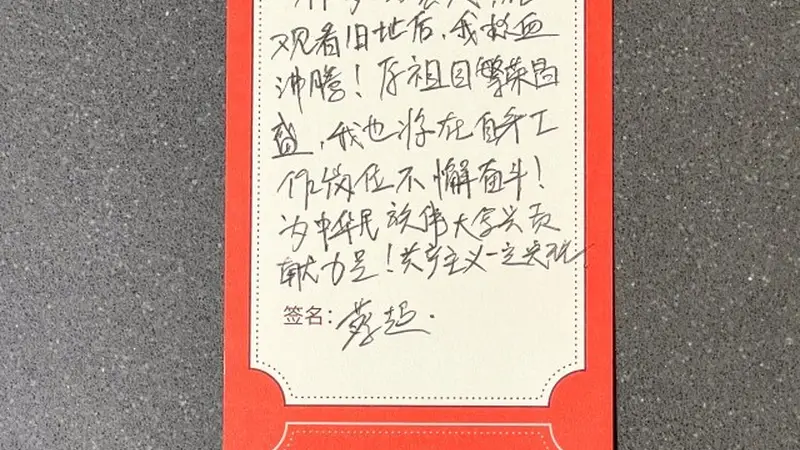 观看旧地后,我热血
沸腾!愿祖国繁荣昌
盛,我也将在自身工
作岗位不懈奋斗!
为中华民族伟大复兴贡
献力量!共产主义一定实现
签名:蔡超.